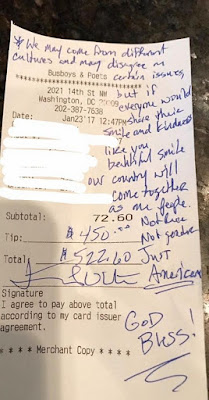 * We may come from different
cultures and may disagree on
certain issues,
Busboys & Poets
******************************
2021 14th St NW
Washington, DC 20009
202-387-7638
but if
everyone would
Date:
Jan23'17 12:47PM
share their
smile and kindness
like your
beautiful smile
our country will
come together
as one people.
Subtotal:
72.60
Not Race
Tip:
$ 450.00
Not gender
Total
$ 522.60
Just
American.
Signature
I agree to pay above total
according to my card issuer
agreement.
God
Bless!
* * * * Merchant Copy * * * *